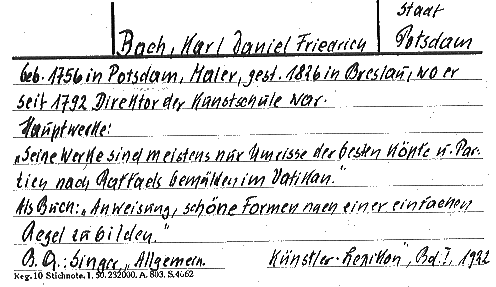 Stadt
Bach, Karl Daniel Friedrich
Potsdam
Geb. 1756 in Potsdam, Maler, gest. 1826 in Breslau, wo er
seit 1792 Direktor der Kunstschule war.
Hauptwerke:
„Seine Werke sind meistens nur Umrisse der besten Köpfe u. Par-
tien nach Raffaels Gemälden im Vatikan."
Als Buch: „Anweisung, schöne Formen nach einer einfachen
Regel zu bilden."
B. Q.: Singer, „Allgemein. Künstler-Lexikon", Bd. I, 1922
Reg. 10 Stichnote. I. 50. 232000. A. 803. S. 4662